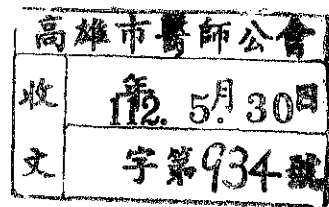 高雄市醫師公會
收文
112.年5.月30日
字第934號